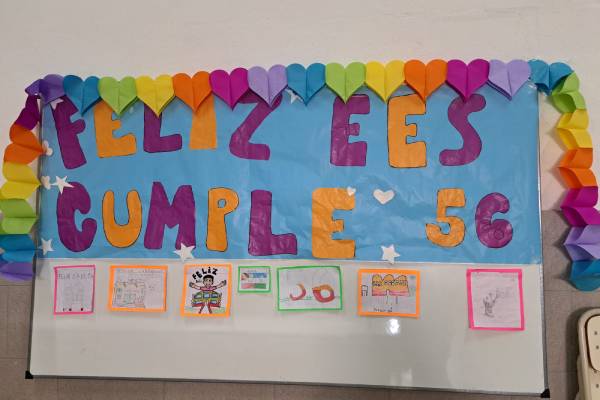 FELIZ EES
CUMPLE 56
FELIZ